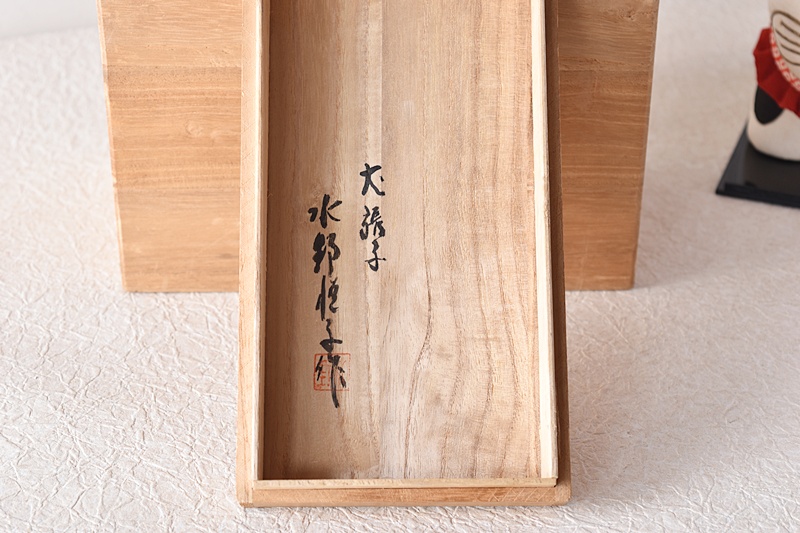 犬張子
水郷恒子作